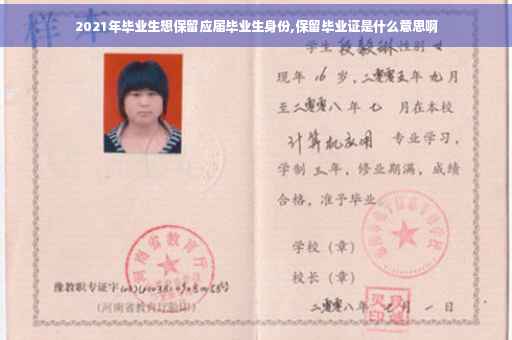 2021年毕业生想保留应届毕业生身份,保留毕业证是什么意思啊
样本
学生 段毅琳 性别 女
现年 16 岁，二零零五年 九月
至二零零八年 七 月在本校
计算机应用 专业学习，
学制 三 年，修业期满，成绩
合格，准予毕业
学校（章）
校长（章）
豫教职专证字
（河南省教育厅验印）
二零零八年 七 月 一 日
河南省教育厅